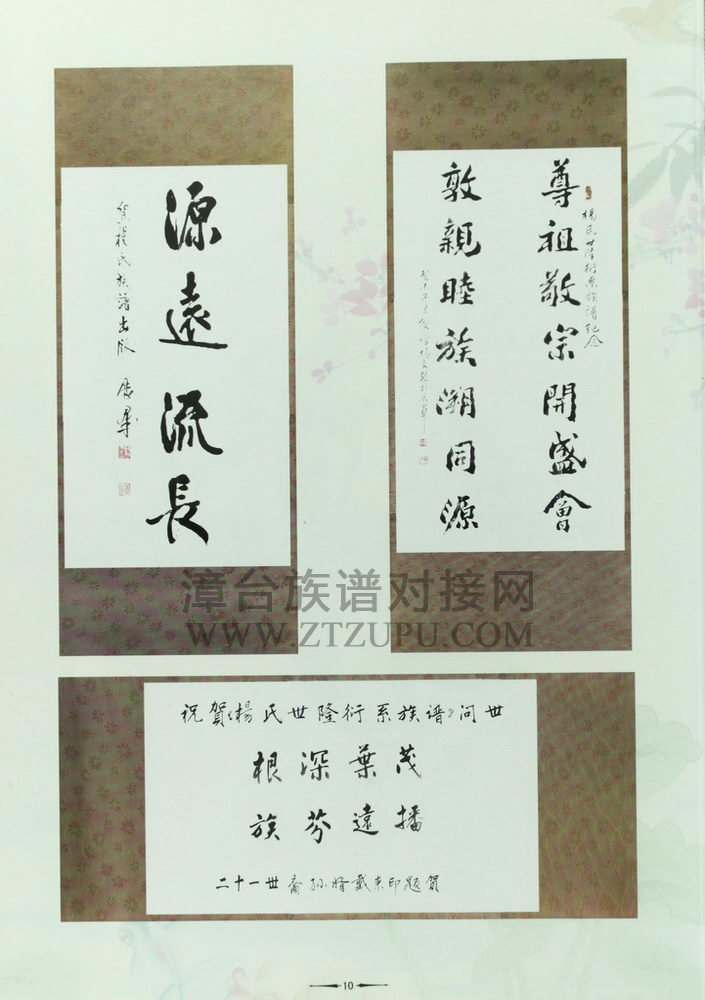 源遠流長
賀楊氏族譜出版
楊氏世隆衍系族譜紀念
尊祖敬宗開盛會
敦親睦族溯同源
漳台族谱对接网
WWW.ZTZUPU.COM
祝賀《楊氏世隆衍系族譜》问世
根深葉茂
族芬遠播
二十一世裔孫婿戴来印題賀
10